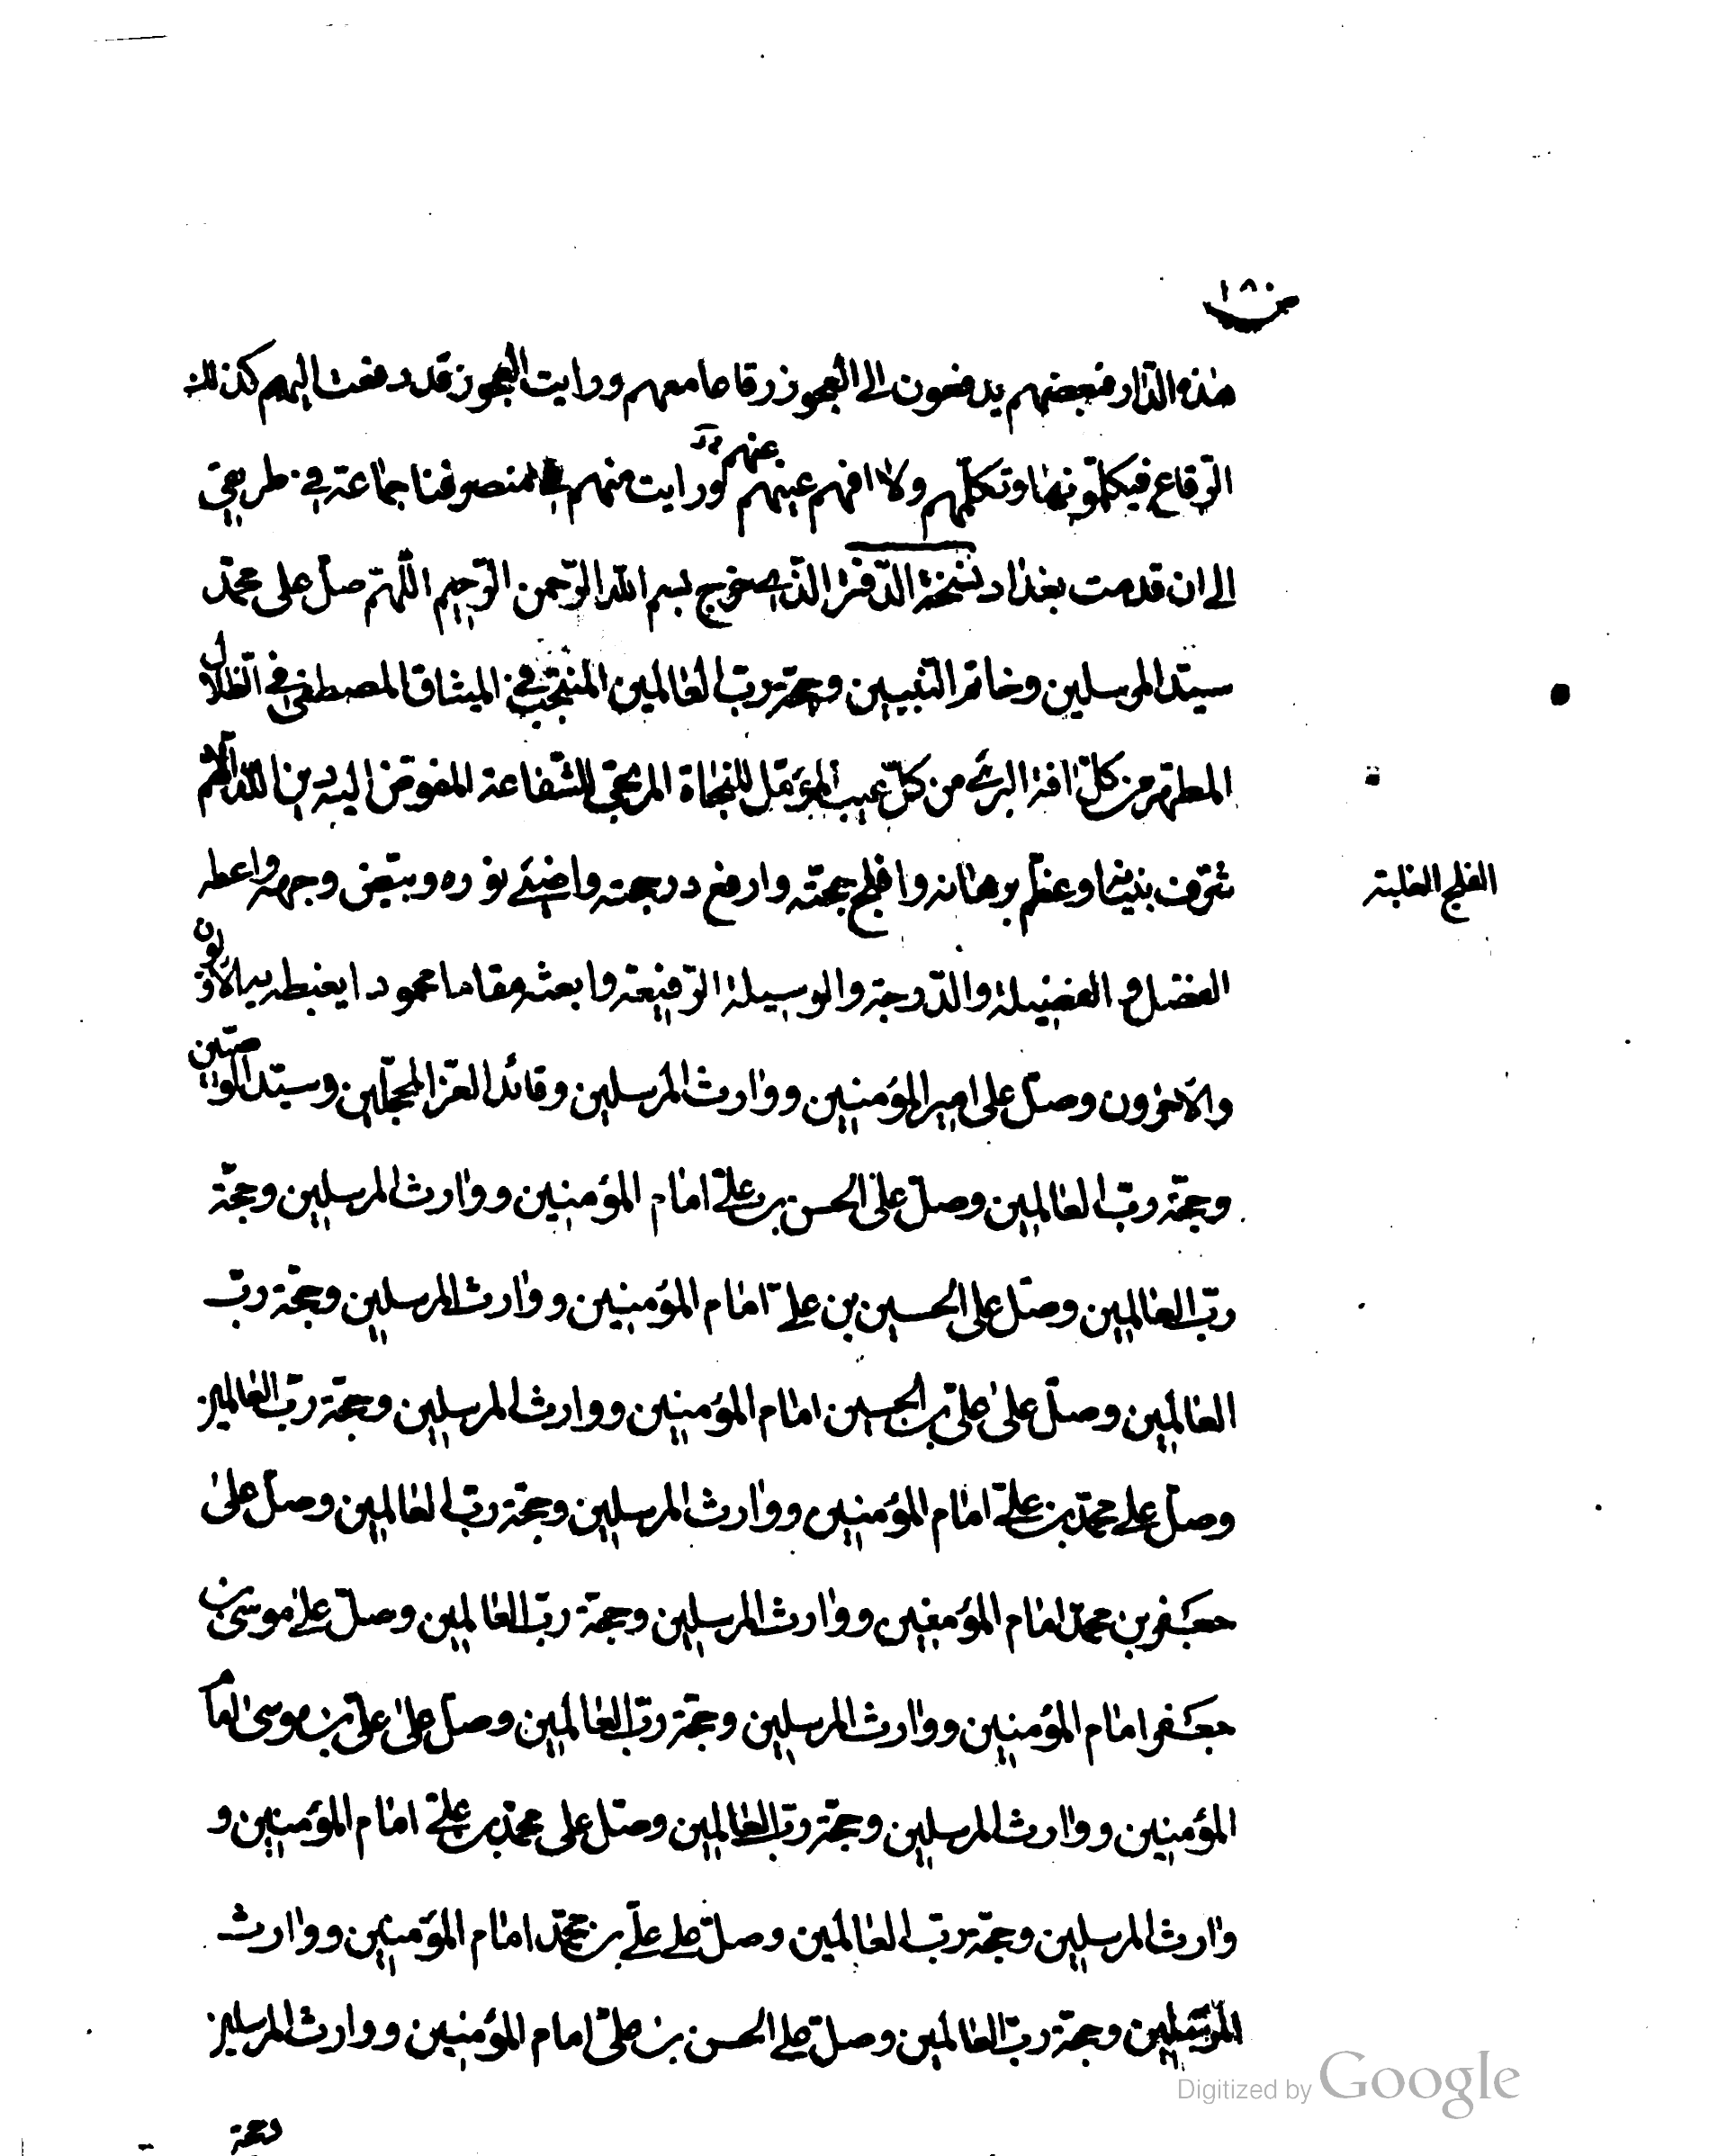 ١٨٠
هذه الدار فبعضهم يدفعون الى العجوز رقاعا معهم ورايت العجوز قد دفعت اليهم كذلك
الرقاع فيكلمونها وتكلمهم ولا افهم عينهم عنهم ورايت منهم في منصرفنا جماعة في طريقي
الى ان قدمت بغداد نسخة الدفتر الذي خرج بسم الله الرحمن الرحيم اللهم صل على محمد
سيد المرسلين وخاتم النبيين وحجة رب العالمين المنتجب في الميثاق المصطفى في الظلال
المطهر من كل افة البرئ من كل عيب المؤمل للنجاة المرتجى للشفاعة المفوض اليه دين الله اللهم
شرف بنيانه وعظم برهانه وافلج حجته وارفع درجته واضئ نوره وبيض وجهه واعطه
الفلج الغلبة
الفضل والفضيلة والدرجة والوسيلة الرفيعة وابعثه مقاما محمودا يغبطه به الاولون
والآخرون وصل على امير المؤمنين ووارث المرسلين وقائد الغر المحجلين وسيد الوصيين
وحجة رب العالمين وصل على الحسن بن علي امام المؤمنين ووارث المرسلين وحجة
رب العالمين وصل على الحسين بن علي امام المؤمنين ووارث المرسلين وحجة رب
العالمين وصل على علي بن الحسين امام المؤمنين ووارث المرسلين وحجة رب العالمين
وصل على محمد بن علي امام المؤمنين ووارث المرسلين وحجة رب العالمين وصل على
جعفر بن محمد امام المؤمنين ووارث المرسلين وحجة رب العالمين وصل على موسى بن
جعفر امام المؤمنين ووارث المرسلين وحجة رب العالمين وصل على علي بن موسى امام
المؤمنين ووارث المرسلين وحجة رب العالمين وصل على محمد بن علي امام المؤمنين و
وارث المرسلين وحجة رب العالمين وصل على علي بن محمد امام المؤمنين ووارث
المرسلين وحجة رب العالمين وصل على الحسن بن علي امام المؤمنين ووارث المرسلين
وحجة
Digitized by Google